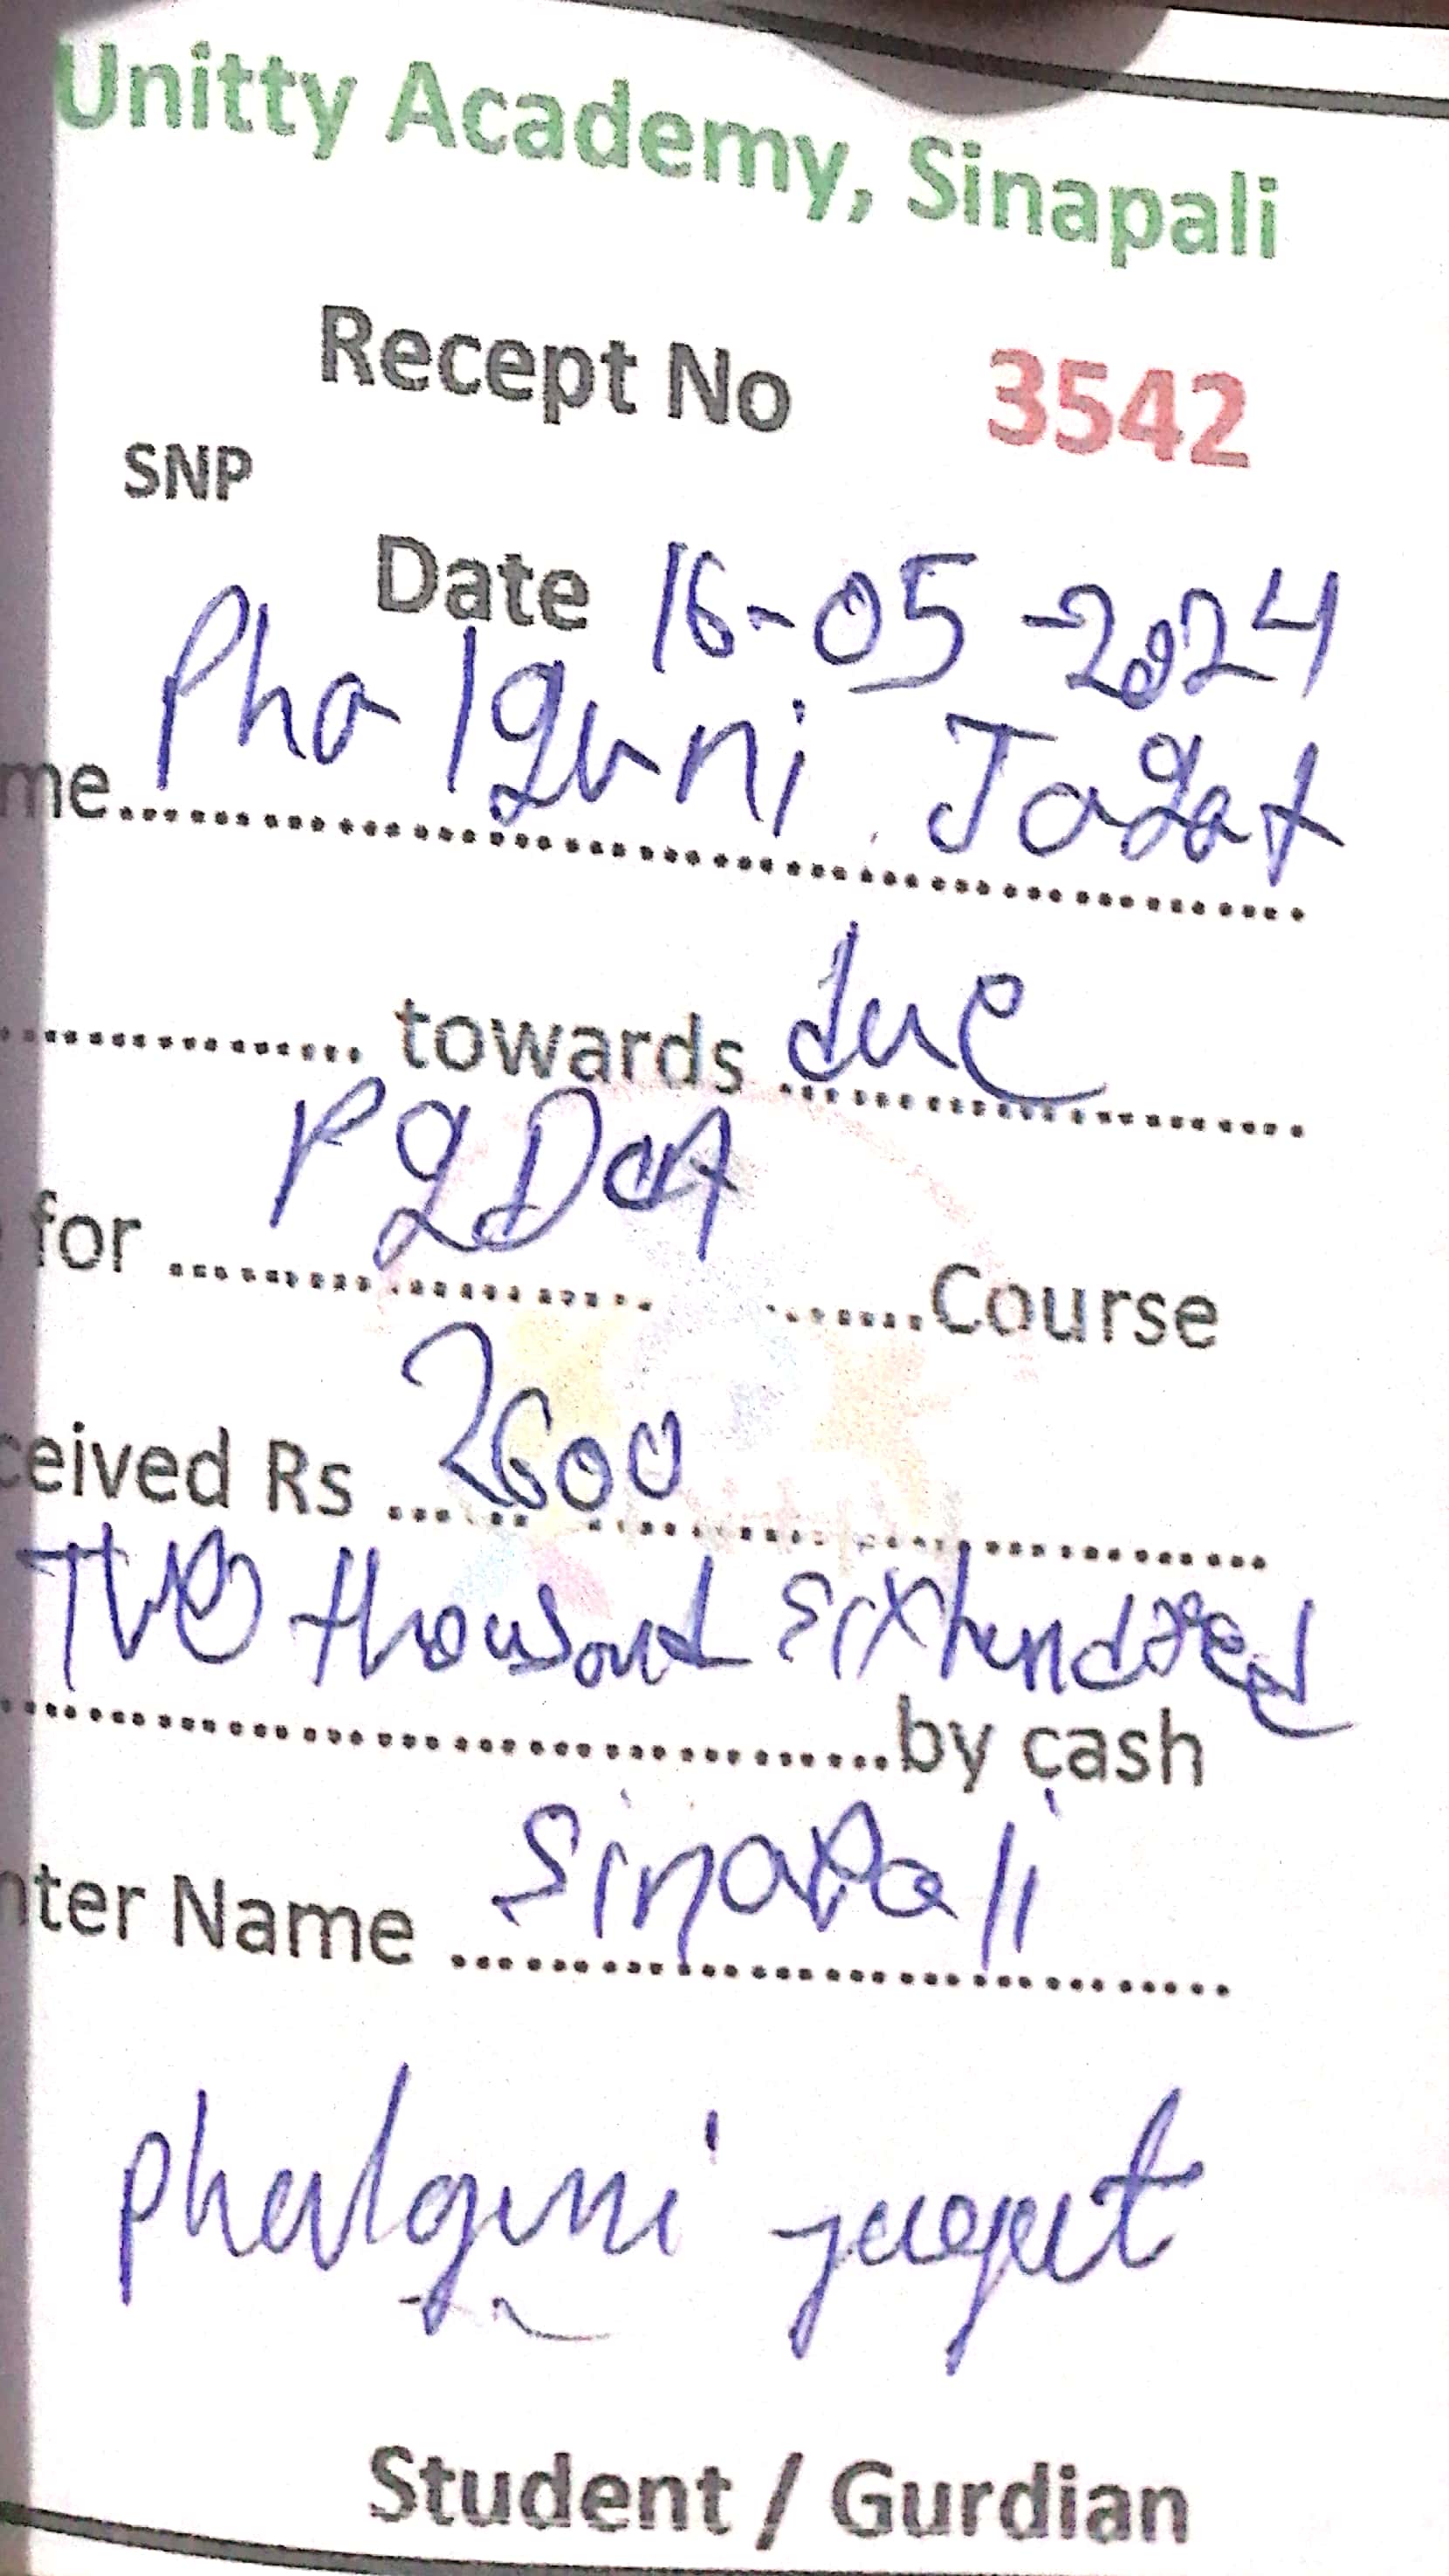 Unitty Academy, Sinapali
Recept No 3542
SNP
Date 16-05-2024
me Phalguni Jagat
towards due
for PgDCA Course
ceived Rs 2600
Two thousand Six hundred
by cash
nter Name Sinapali
phalguni jagat
Student / Gurdian